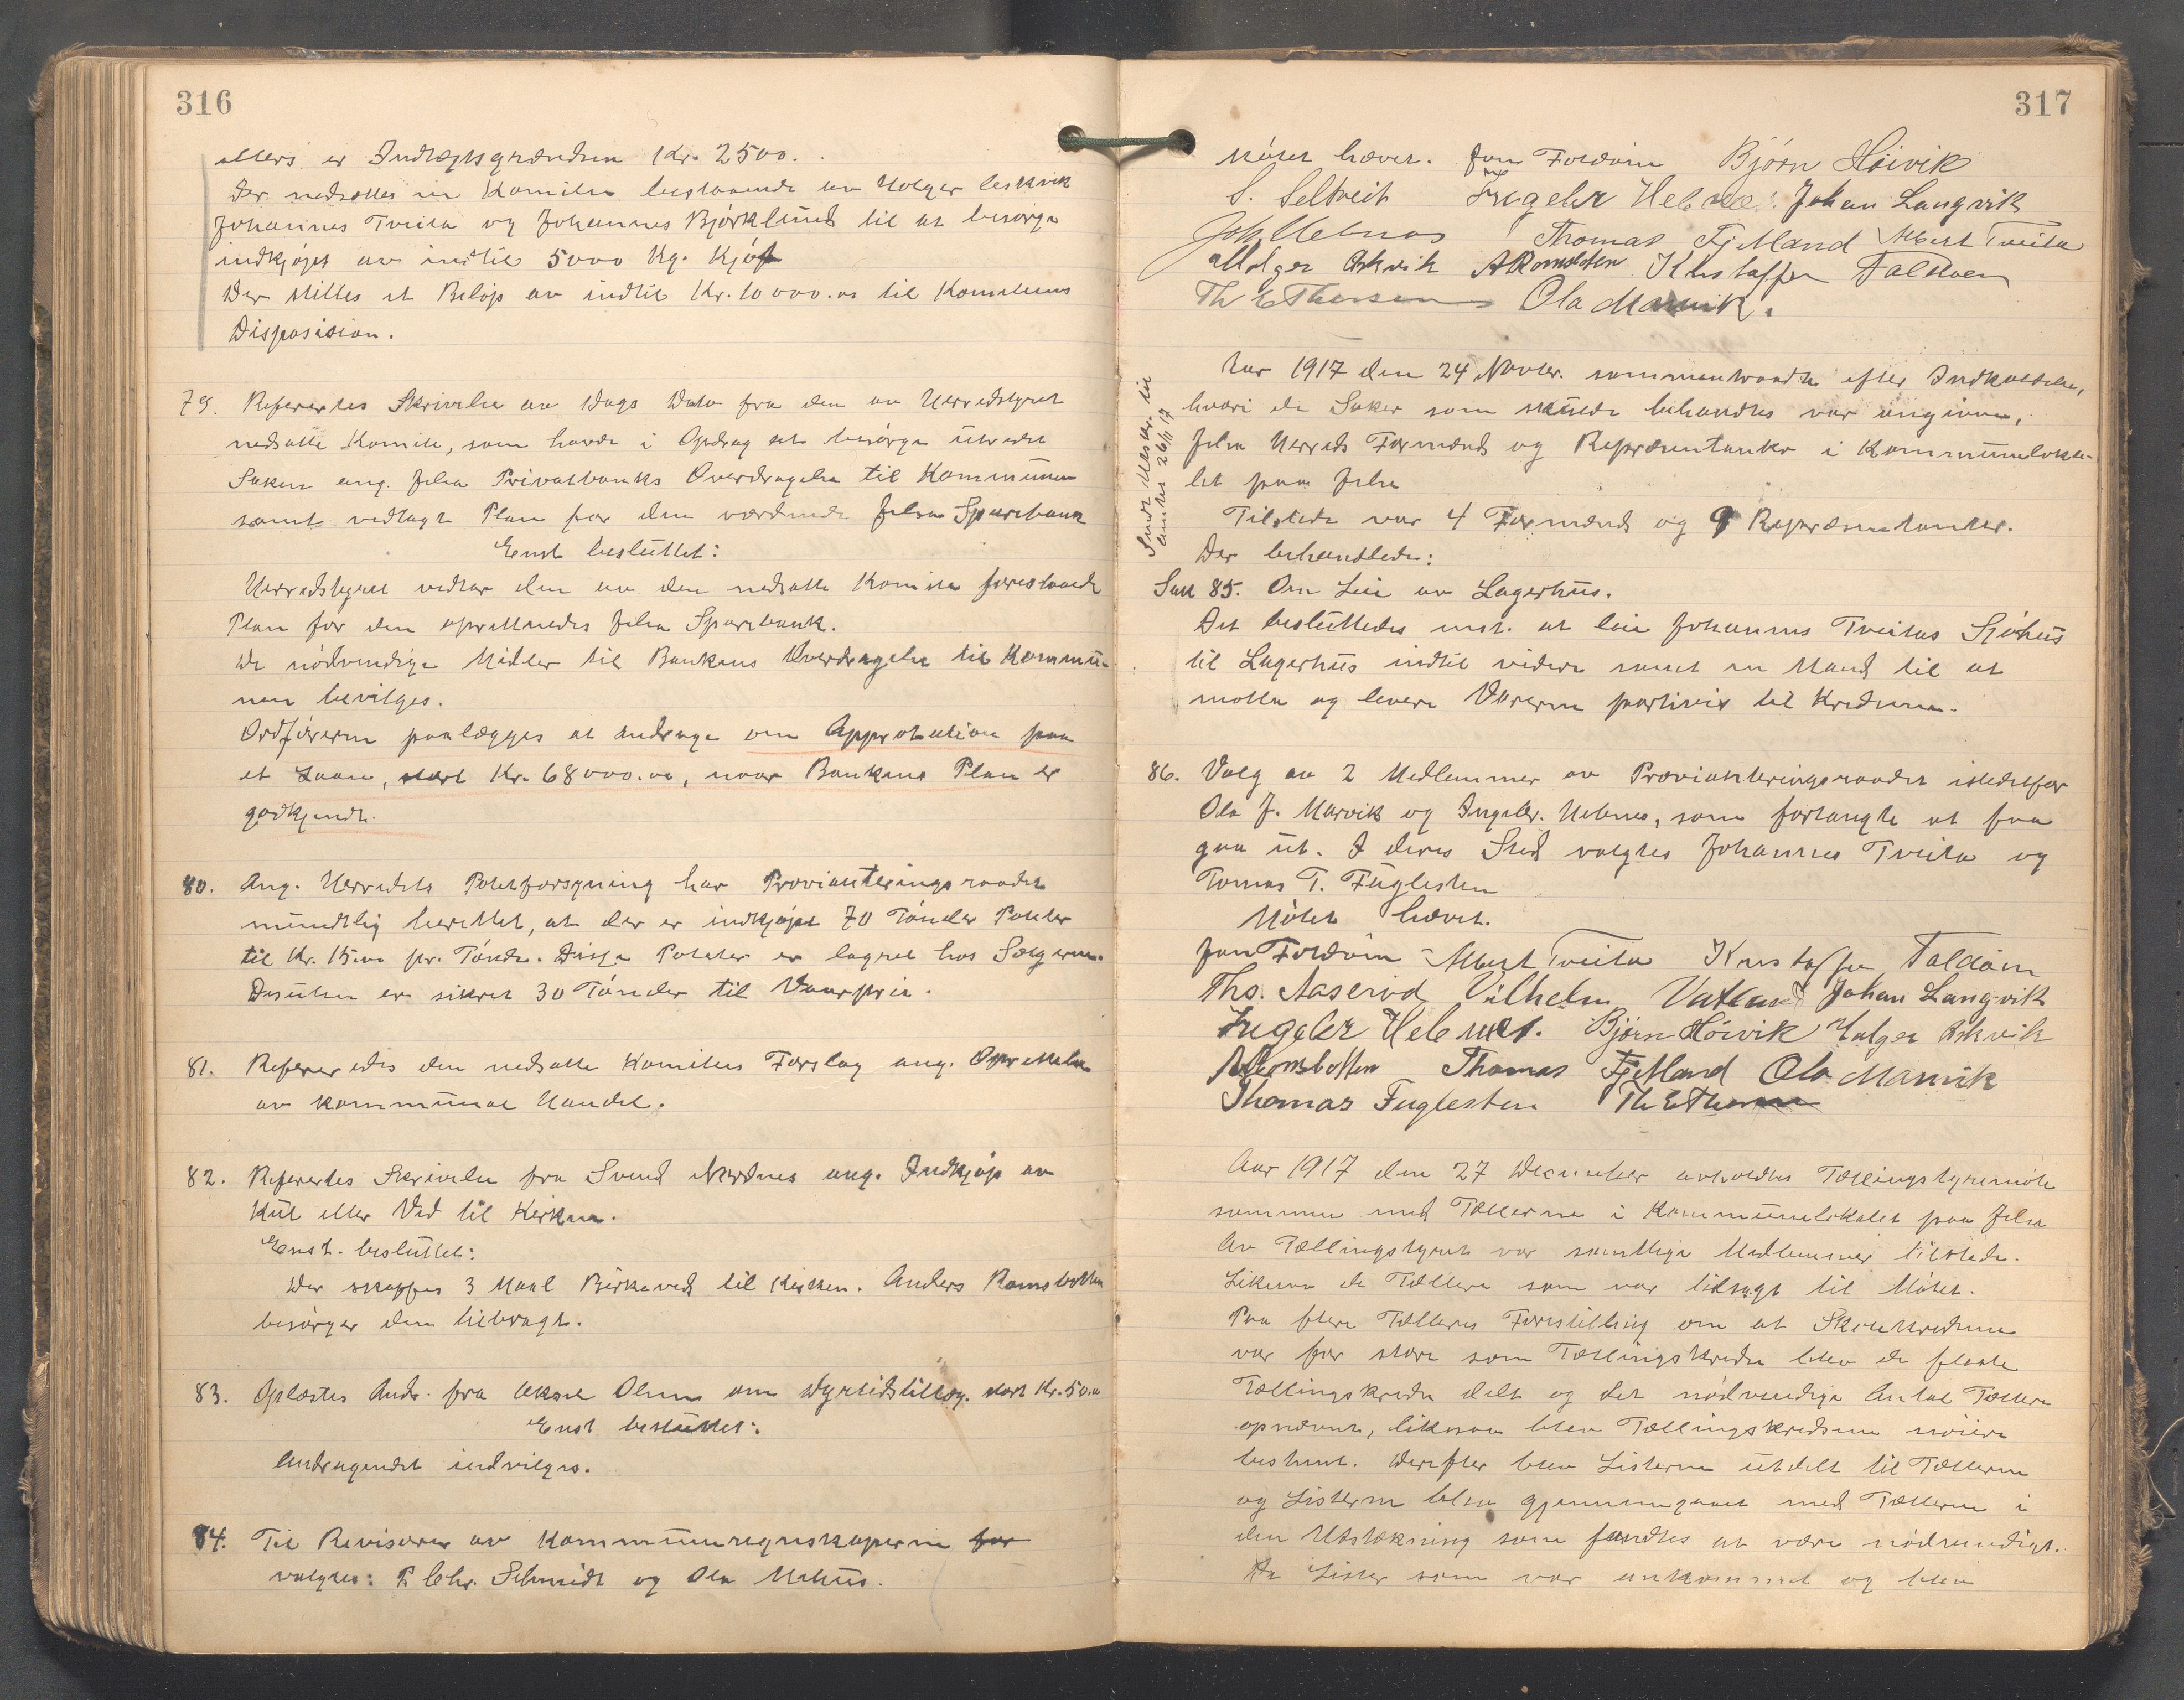 316
ellers er Indtægtsgrændsen Kr. 2500.
Der nedsættes en Komite bestaaende av Holger Eskvik
Johannes Tveita og Johannes Bjórklund til at besørge
indkjøpet av indtil 5000 Kg. Kjøt
Der stilles et Beløp av indtil Kr. 10000.00 til Komiteens
Disposision.
79. Referertes Skrivelse av Dags Dato fra den av Herredstyret
nedsatte Komite, som havde i Opdrag at besørge utredet
Saken ang. Jelsa Privatbanks Overdragelse til Kommunen
samt vedlagt Plan for den vordende Jelsa Sparebank
Enst besluttet:
Herredstyret vedtar den av den nedsatte Komite foreslaaede
Plan for den oprettendes Jelsa Sparebank.
De nödvendige Midler til Bankens Overdragelse til Kommu-
nen bevilges.
Ordføreren paalægges at andrage om Approbation paa
et Laan, stort Kr. 68000.00, naar Bankens Plan er
godkjendt.
80. Ang. Herredets Potetforsyning har Provianteringsraadet
mundtlig berettet, at der er indkjøpt 70 Tónder Poteter
til Kr. 15.00 pr. Tónde. Disse Poteter er lagret hos Sælgerne.
Desuten er sikret 30 Tónder til Vaarpris.
81. Refereredes den nedsatte Komites Forslag ang. Oprettelse
av kommunal Handel.
82. Referertes Skrivelse fra Svend Nordnes ang. Indkjøp av
Kul eller Ved til Kirken.
Enst. besluttet:
Der skaffes 3 Maal Birkeved til Kirken. Anders Ramsbotten
besørger den tilbragt.
83. Oplæstes Andr. fra Aksel Olsen om Dyrtidstillæg. stort Kr. 50.00
Enst besluttet:
Andragendet indvilges.
84. Til Revisorer av Kommuneregnskaperne for
valgtes: P. Chr. Schmidt og Ola Mehus.
317
Mótet hævet. Jon Foldöin Björn Höivik
S. Seltveit Ingebr Hebnes. Johan Langvik
Joh Hebnes Thomas Fjetland Albert Tveita
Holger Eskvik A Ramsbotten Kristoffer Foldöen
Th E Thorsen Ola Marvik.
Aar 1917 den 24 Novbr. sammentraadte efter Indkaldelse,
hvori de Saker som skulde behandles var angivne,
Jelsa Herreds Formænd og Repræsentanter i Kommuneloka-
let paa Jelsa
Tilstede var 4 Formænd og 9 Repræsentanter.
Der behandledes:
Sak 85. Om Leie av Lagerhus.
Det besluttedes enst. at leie Johannes Tveitas Sjöhus
til Lagerhus indtil videre samt en Mand til at
motta og levere Varerne partivis til Kredsene.
86. Valg av 2 Medlemmer av Provianteringsraadet istedetfor
Ola J. Marvik og Ingebr. Hebnes, som forlangte at faa
gaa ut. I deres Sted valgtes Johannes Tveita og
Tomas T. Fuglesten
Mótet hævet.
Jon Foldöin Albert Tveita Kristoffer Foldöen
Ths. Aaseröd Vilhelm Vatland Johan Langvik
Ingebr Hebnes. Björn Höivik Holger Eskvik
A Ramsbotten Thomas Fjetland Ola Marvik
Thomas Fuglesten Th E Thorsen
Aar 1917 den 27 December avholdtes Tællingstyremöte
sammen med Tællerne i Kommunelokalet paa Jelsa
Av Tællingstyret var samtlige Medlemmer tilstede.
Likesaa de Tællere som var tilsagt til Mótet.
Paa flere Tælleres Forestilling om at Skolekredsene
var for store som Tællingskredse blev de fleste
Tællingskredse delt og det nödvendige Antal Tællere
opnævnt, likesaa blev Tællingskredsene nöiere
bestemt. Derefter blev Listerne utdelt til Tællerne
og Listerne blev gjennemgaaet med Tællerne i
den Utstrækning som fandtes at være nödvendigt.
De Lister som var ankommet og blev